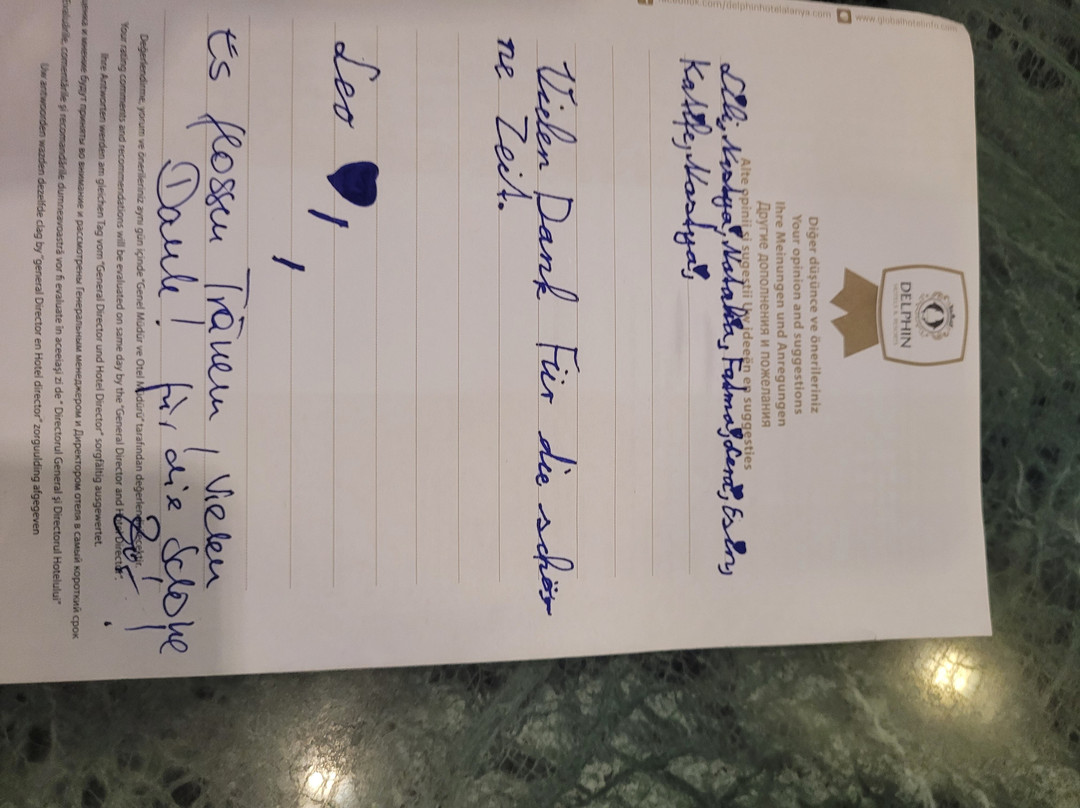 facebook.com/delphinhotelalanya.com www.globalhotelinfo.com
DELPHIN
Diğer düşünce ve önerileriniz
Your opinion and suggestions
Ihre Meinungen und Anregungen
Другие дополнения и пожелания
Alte opinii și sugestii Uw ideeën en suggesties
Lilli, Nastya, Natalia, Fatma, Lena, Esra,
Nastya,
Vielen Dank Für die schö
ne Zeit.
Leo
Es flossen Tränen! Vielen
Dank! für die Schöne
Değerlendirme, yorum ve önerileriniz aynı gün içinde "Genel Müdür ve Otel Müdürü" tarafından değerlendirilecektir.
Your rating comments and recommendations will be evaluated on same day by the "General Director and Hotel Director".
Ihre Antworten werden am gleichen Tag vom "General Director und Hotel Director" sorgfältig ausgewertet.
и мнение будут приняты во внимание и рассмотрены Генеральным менеджером и Директором отеля в самый короткий срок
comentările și recomandările dumneavoastră vor fi evaluate in aceeiași zi de " Directorul General și Directorul Hotelului"
Uw antwoorden wazden dezelfde dag by "general Director en Hotel director" zorguulding afgegeven